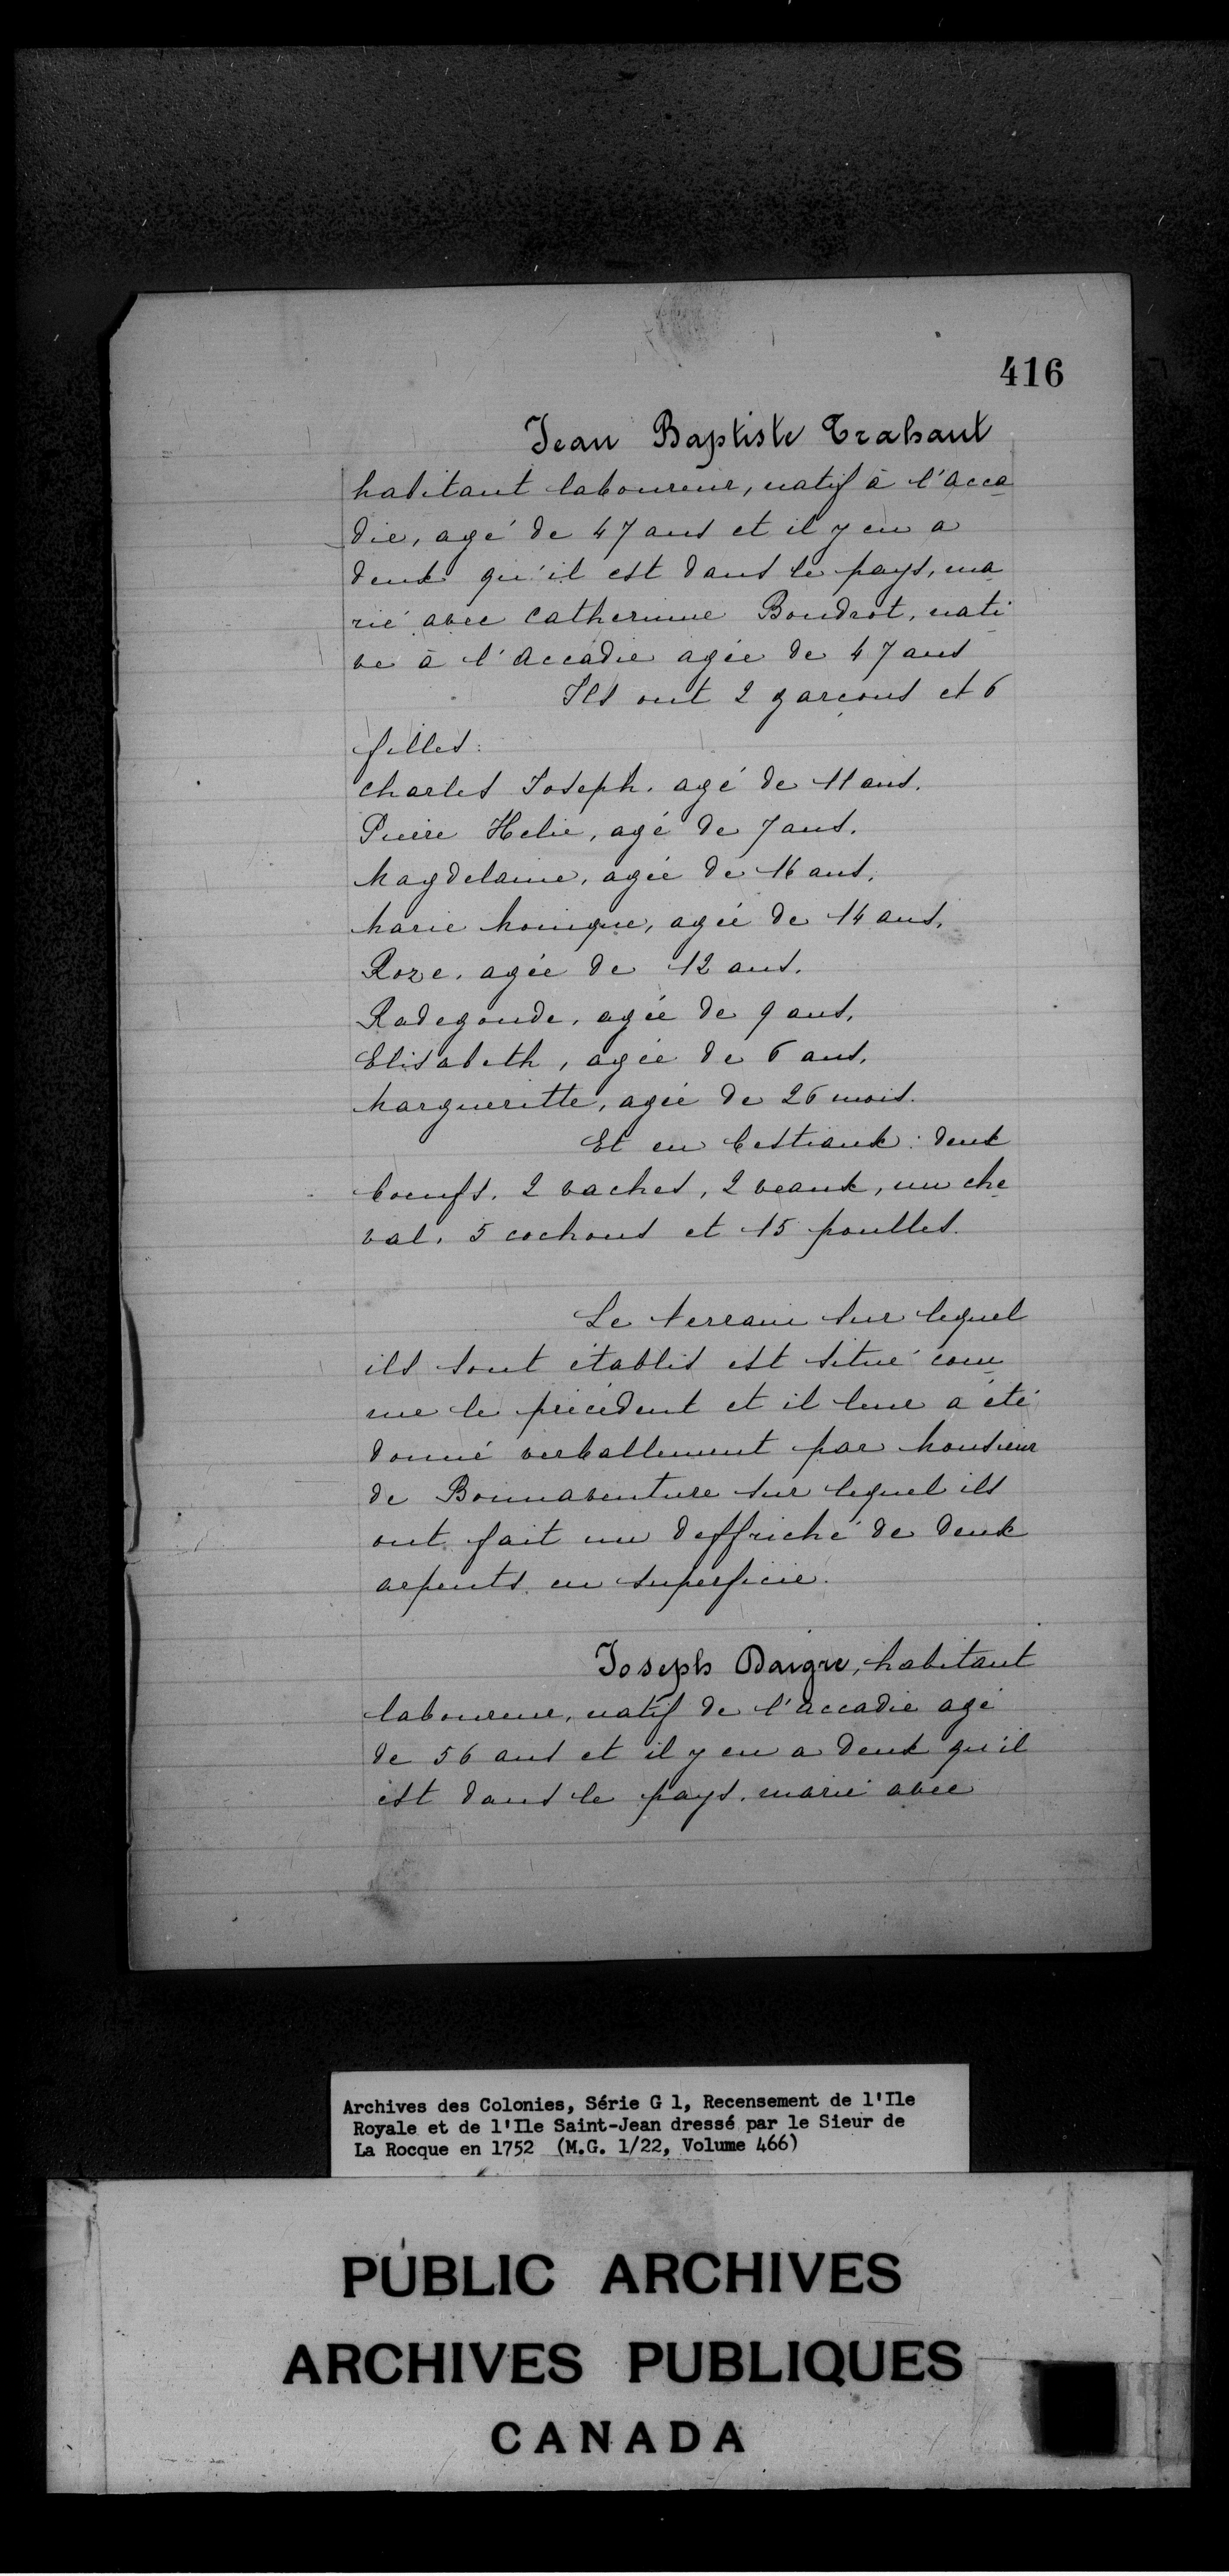 416
Jean Baptiste Trahant
habitant laboureur, natif à l'acca
die, agé de 47 ans et il y en a
deux qu'il est dans le pays, ma
rié avec Catherinne Boudrot, nati
ve à l'accadie agée de 47 ans
Ils ont 2 garçons et 6
filles:
Charles Joseph, agé de 11 ans.
Pierre Helie, agé de 7 ans.
Magdelaine, agée de 16 ans,
Marie Monique, agée de 14 ans,
Roze, agée de 12 ans.
Radegonde, agée de 9 ans,
Elisabeth, agée de 6 ans,
Margueritte, agée de 26 mois.
Et en bestiaux: deux
boeufs, 2 vaches, 2 veaux, un che
val, 5 cochons et 15 poulles.
Le terrain sur lequel
ils sont établis est situé com
me le précédent et il leur a été
donné verballement par Monsieur
de Bonnaventure sur lequel ils
ont fait un deffriché de deux
arpents en superficie.
Joseph Daigre, habitant
laboureur, natif de l'accadie agé
de 56 ans et il y en a deux qu'il
est dans le pays, marié avec
Archives des Colonies, Série G 1, Recensement de l'Ile
Royale et de l'Ile Saint-Jean dressé par le Sieur de
La Rocque en 1752 (M.G. 1/22, Volume 466)
PUBLIC ARCHIVES
ARCHIVES PUBLIQUES
CANADA